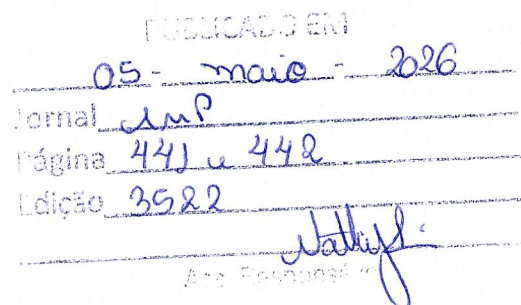 PUBLICADO EM
05 - maio - 2026
Jornal AMP
Página 441 e 442
Edição 3522
Ass. Responsável